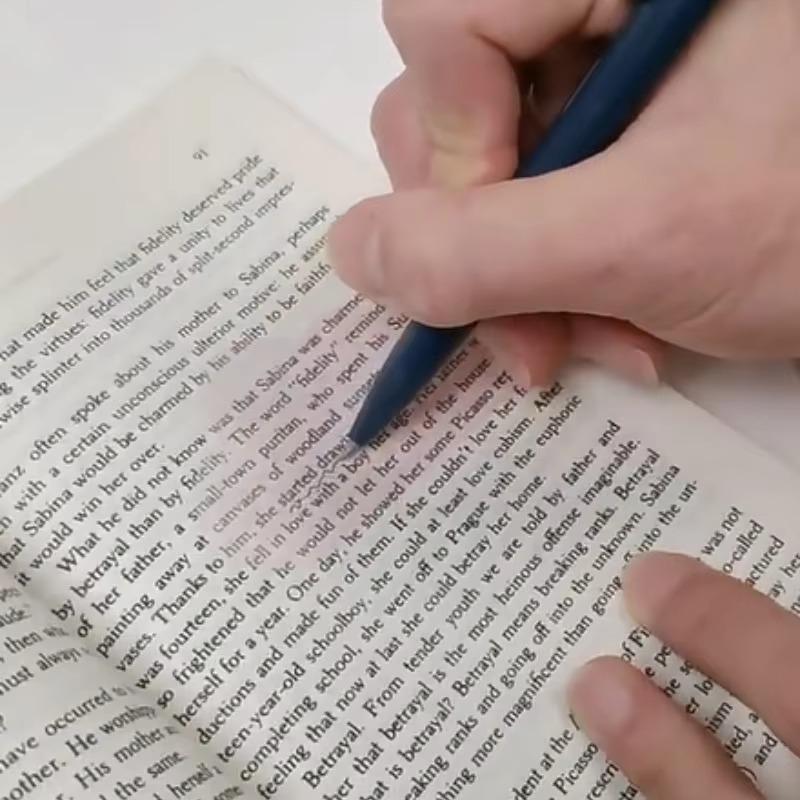 91
hat made him feel that fidelity deserved pride
g the virtues: fidelity gave a unity to lives that
wise splinter into thousands of split-second impres-
anz often spoke about his mother to Sabina, perhaps
n with a certain unconscious ulterior motive: he assu
hat Sabina would be charmed by his ability to be faithf
it would win her over.
What he did not know was that Sabina was charme
by betrayal than by fidelity. The word "fidelity" remind
of her father, a small-town puritan, who spent his Su
painting away at canvases of woodland sunse
vases. Thanks to him, she started draw
was fourteen, she fell in love with a boy her age. Her father w
so frightened that he would not let her out of the house
herself for a year. One day, he showed her some Picasso rep
ductions and made fun of them. If she couldn't love her f
teen-year-old schoolboy, she could at least love cubism. After
completing school, she went off to Prague with the euphoric
feeling that now at last she could betray her home.
Betrayal. From tender youth we are told by father and
her that betrayal is the most heinous offense imaginable.
hat is betrayal? Betrayal means breaking ranks. Betrayal
eaking ranks and going off into the unknown. Sabina
hing more magnificent than going off into the un-
was not
o-called
dent at the
Picasso
then
must always
have occurred to
other. He worship
His mother
d the same.